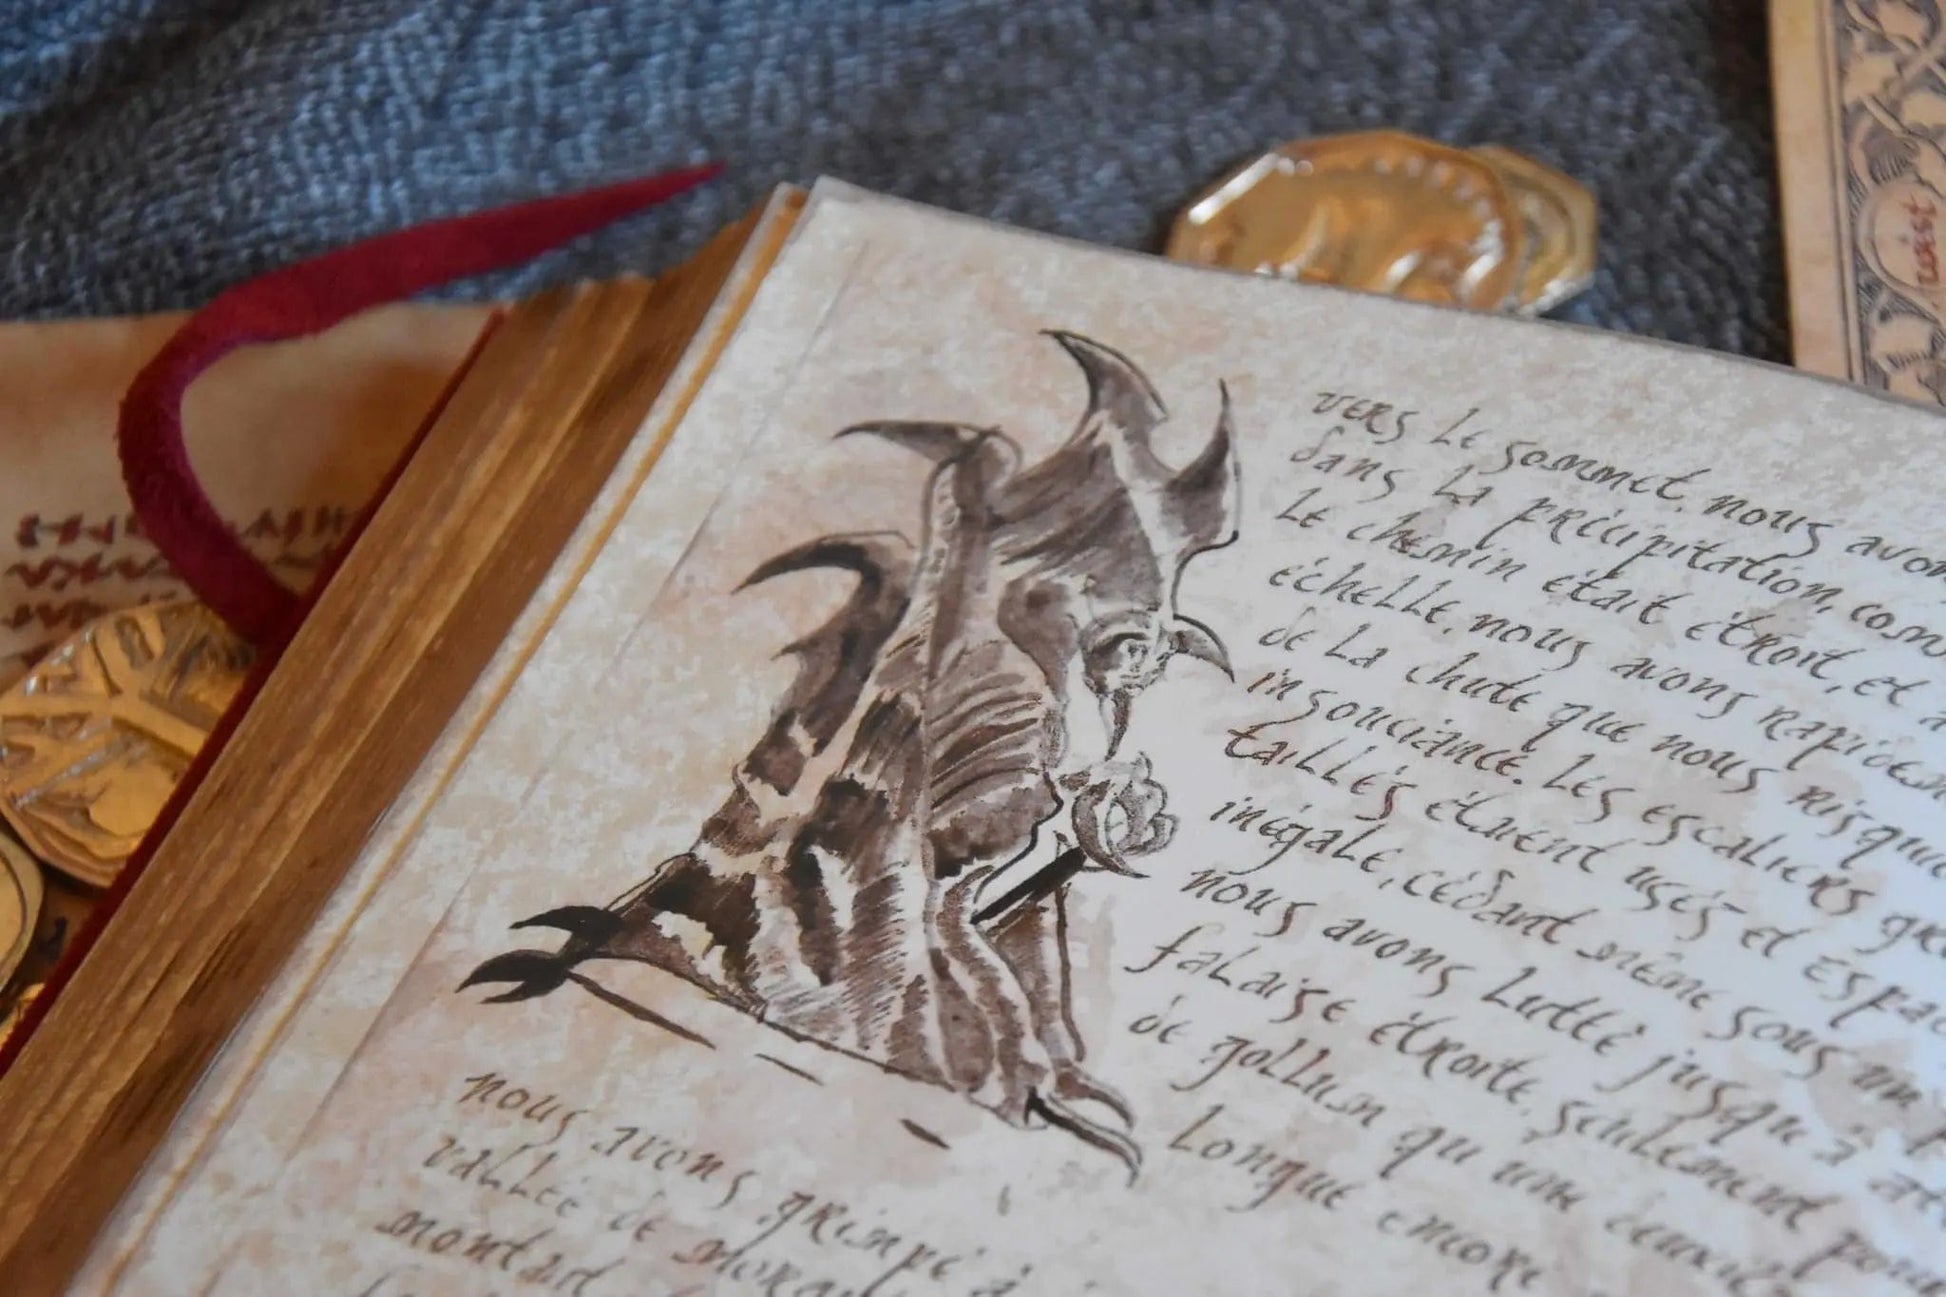 vers le sommet, nous avon
dans la précipitation, com
le chemin était étroit, et a
échelle, nous avons rapidem
de la chute que nous risqui
insouciance. Les escaliers gr
taillés étaient usés et espac
inégale, cédant même sous un p
nous avons lutté jusqu'à att
falaise étroite, seulement pour
de gollum qu'une
longue encore
nous avons grimpé à
vallée de morgu
montant
west